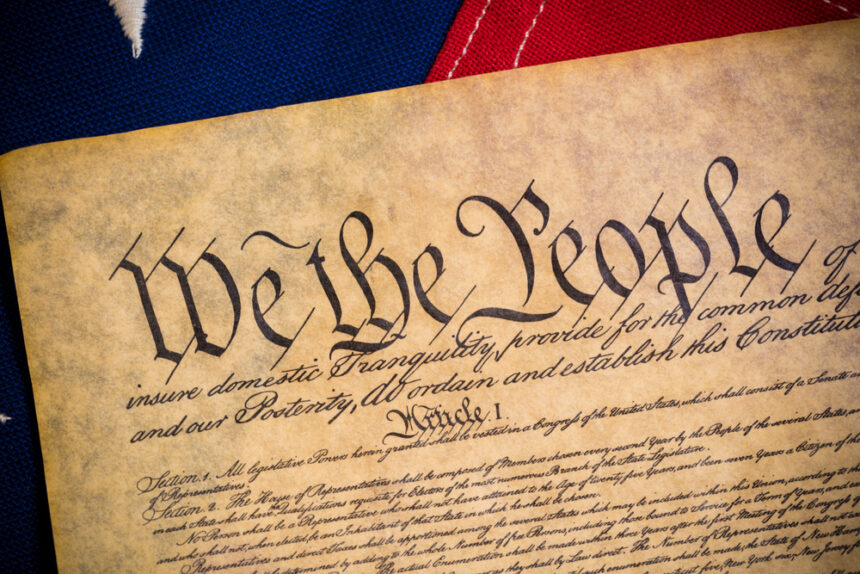 We the People of
insure domestic Tranquility, provide for the common def
and our Posterity, do ordain and establish this Constituti
Article I.
Section. 1. All legislative Powers herein granted shall be vested in a Congress of the United States, which shall consist of a Senate an
of Representatives.
Section. 2. The House of Representatives shall be composed of Members chosen every second Year by the People of the several States, an
in each State shall have the Qualifications requisite for Electors of the most numerous Branch of the State Legislature.
No Person shall be a Representative who shall not have attained to the Age of twenty five Years, and been seven Years a Citizen of the
and who shall not, when elected, be an Inhabitant of that State in which he shall be chosen.
Representatives and direct Taxes shall be apportioned among the several States which may be included within this Union, according to the
be determined by adding to the whole Number of free Persons, including those bound to Service for a Term of Years, and
The actual Enumeration shall be made within three Years after the first Meeting of the Congress of
as they shall by Law direct. The Number of Representatives shall not
such enumeration shall be made, the State of New Hamp
five, New York six, New Jersey fo